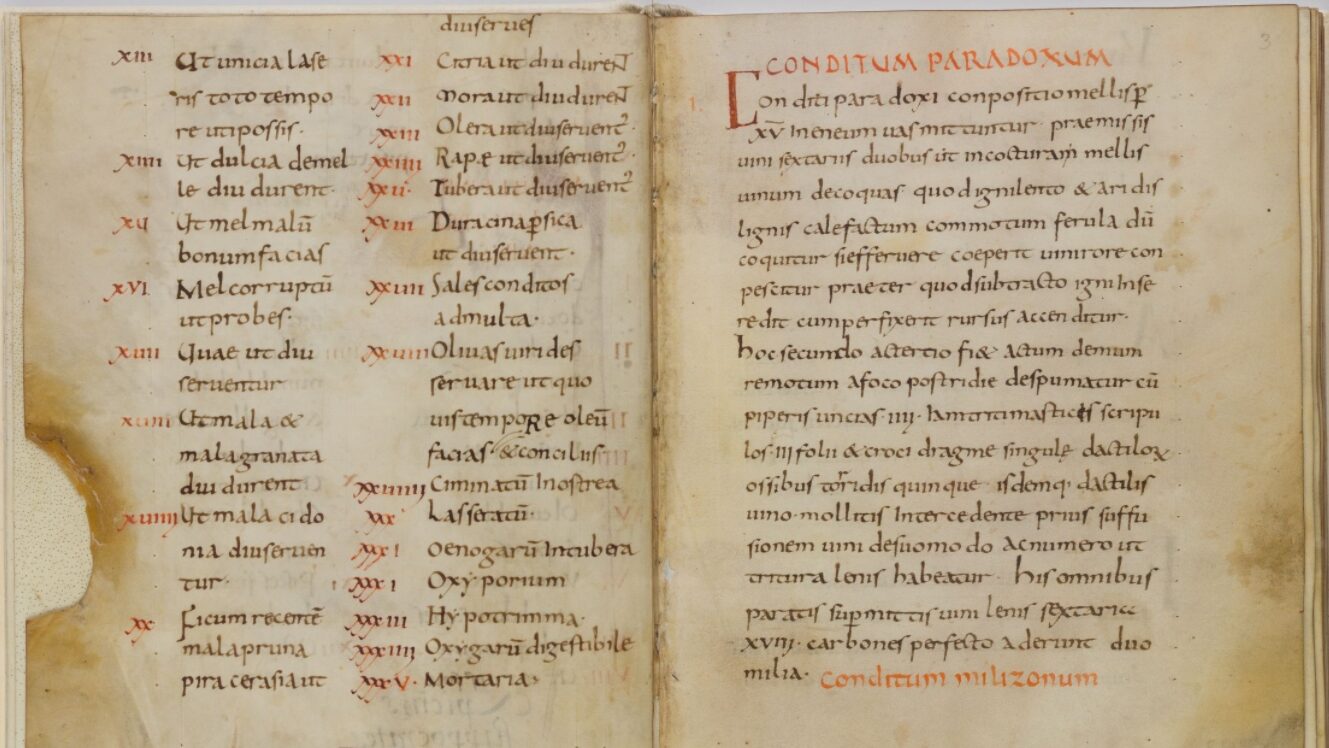 XIII Ut unicia lase
ris toto tempo
re utipossis·
XIIII Ut dulcia demel
le diu durent·
XV Ut mel malū
bonum facias
XVI Mel corruptū
ut probes·
XVII Quae ut diu
serventur
XVIII Ut mala &
mala granata
diu durent
XVIIII Ut mala cido
nia diu serven
tur·
XX Ficum recentē
mala pruna
pira cerasia ut
diu serves
XXI Citria ut diu durent
XXII Mora ut diu durent
XXIII Olera ut diu servent᷑·
XXIIII Rapae ut diu servent᷑·
XXV· Tubera ut diu servent᷑
XXVI Duracina ꝑsica
ut diu servent·
XXVII Sales conditos
ad multa·
XXVIII Olivas virides
servare ut quo
vis tempore oleū
facias· & concilius
XXVIIII Ciminatū In ostrea
XXX Lasseratū·
XXXI Oenogarū In tubera
XXXI Oxyporium
XXXIII Hypotrimma·
XXXIIII Oxygarū digestibile
XXXV· Mortaria·
3
CONDITUM PARADOXUM
I. Conditi paradoxi conpositio mellis ꝑ
XV In eneum vas mittuntur· praemissis
vini sextariis duobus ut in cocturam mellis
vinum decoquas· quod igni lento & aridis
lignis calefactum commotum ferula dū
coquitur si effervere coeperit vini rore con
pescitur praeter quod subtracto igni In se
redit cum perfixerit rursus accenditur·
hoc secundo ac tertio fi& actum demum
remotum a foco postridie despumatur cū
piperis uncias IIII· Iam triti masticis scripu
los· III folii & croci dragme singulę dactiloꝝ
ossibus torridis quinque· isdemq· dactilis
vino· mollitis Intercedente prius suffu
sionem vini de suo modo ac numero ut
tritura lenis habeatur· his omnibus
paratis supmittis vini lenis sextarii
XVIII· carbones perfecto aderunt duo
milia· Conditum milizonum